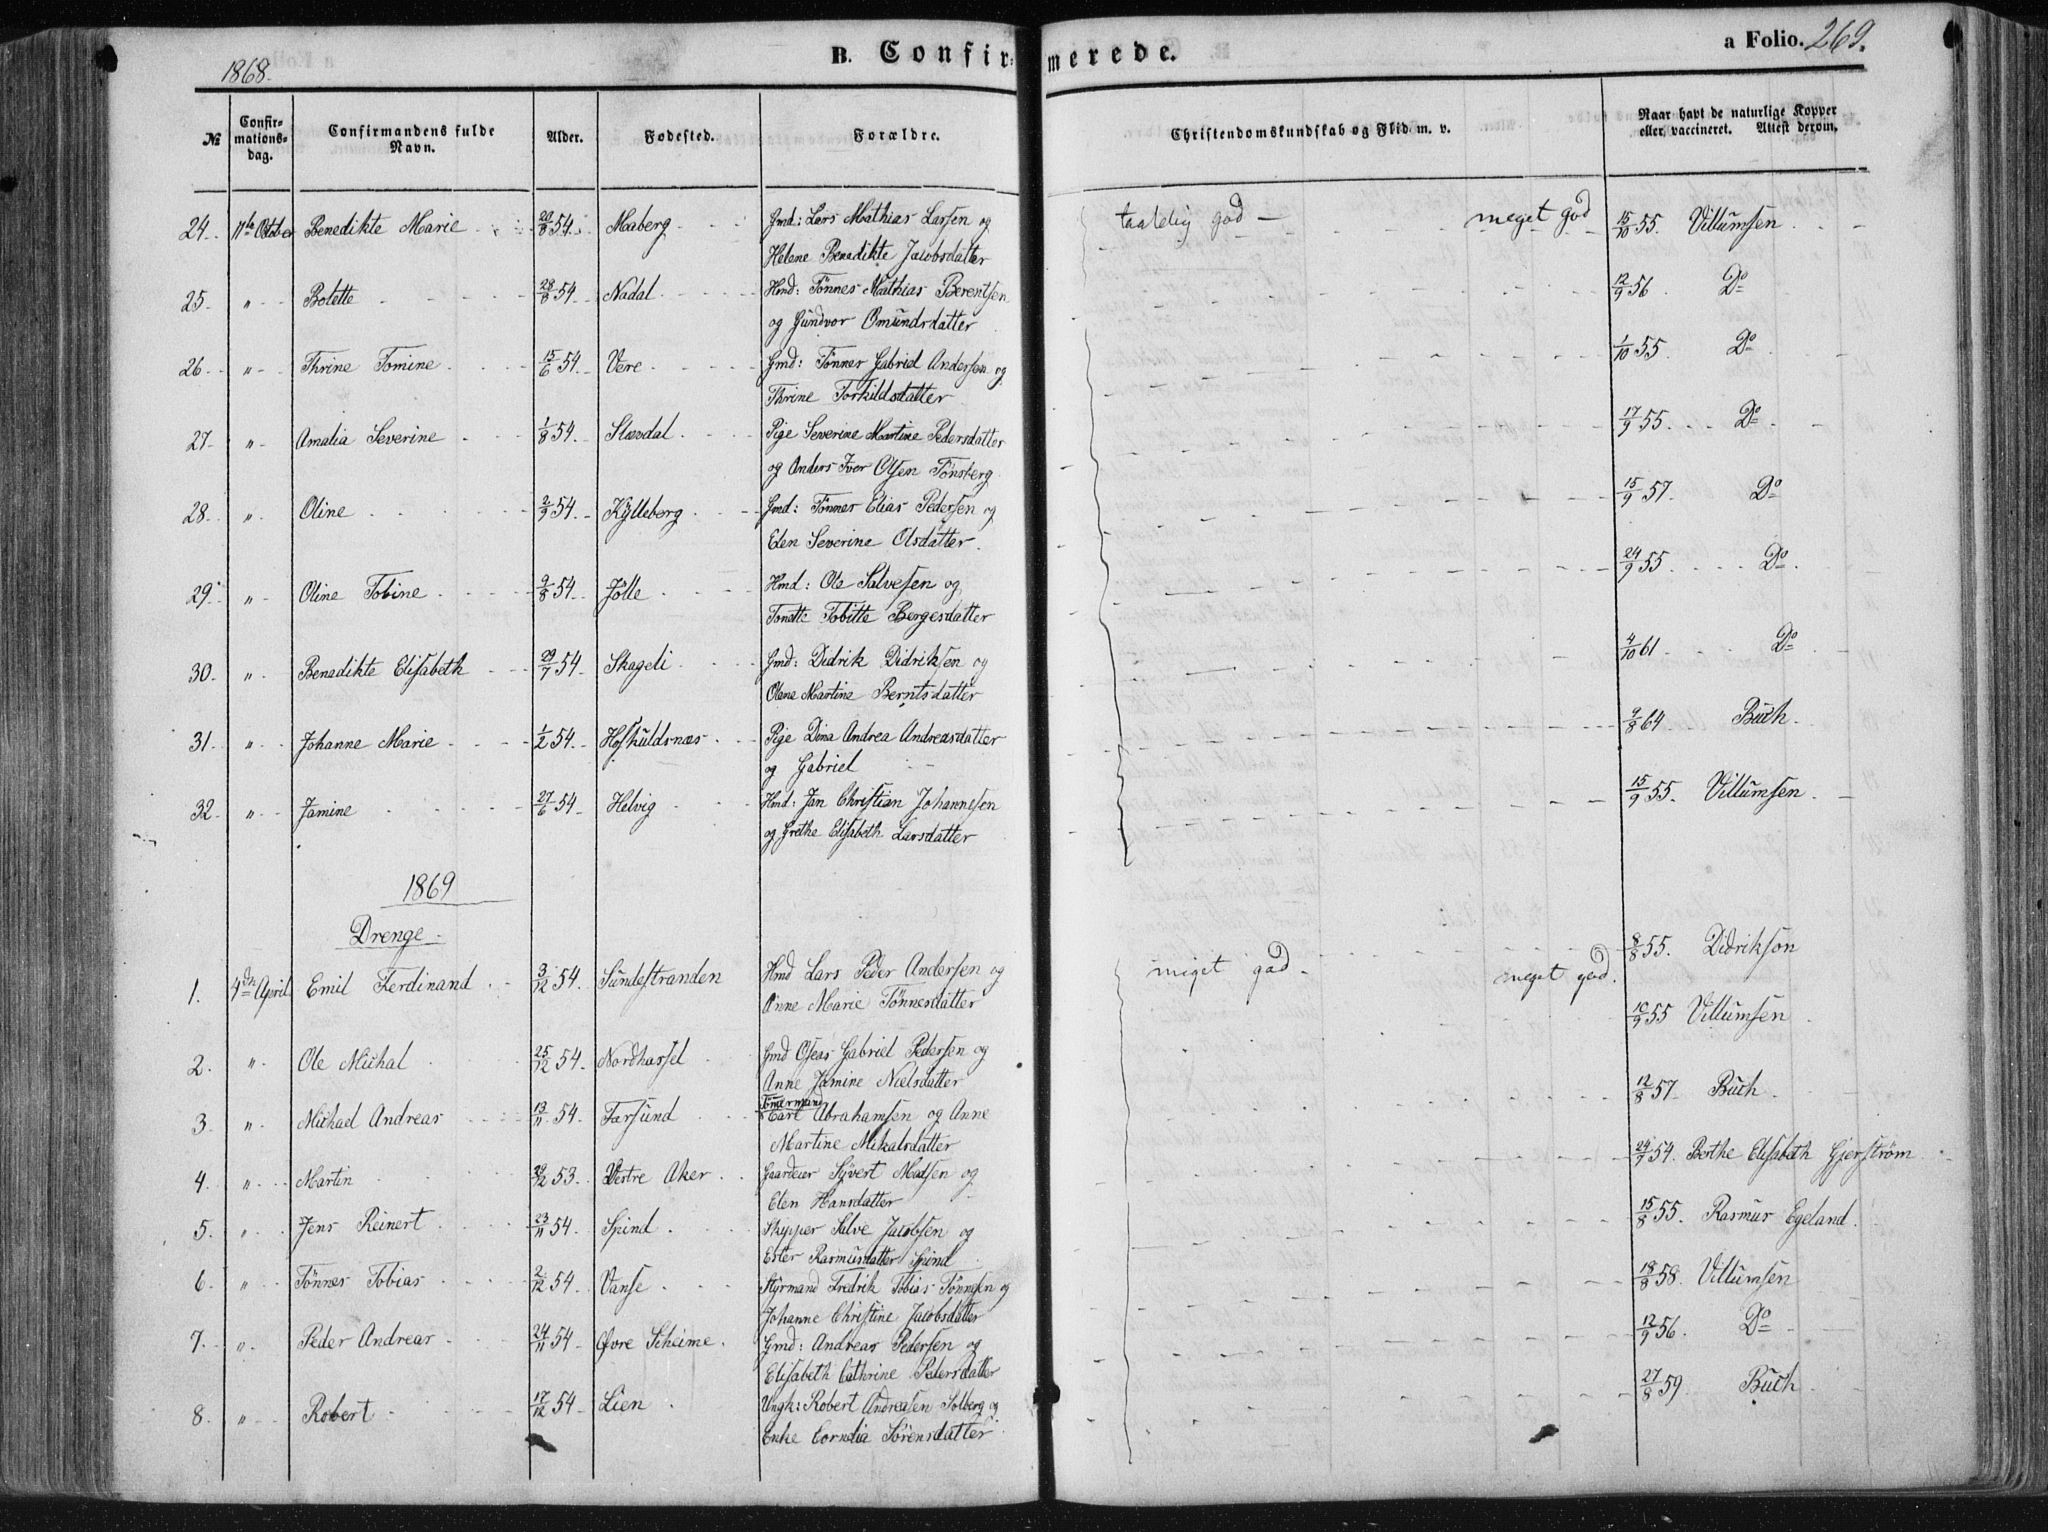 1868.
B. Confirmerede.
a Folio. 269.
№ Confirmationsdag. Confirmandens fulde Navn. Alder. Fødested. Forældre. Christendomskundskab og Flid m. v. Naar havt de naturlige Kopper eller vaccineret. Attest derom.
24. 11te October Benedikte Marie 20/8 54. Maberg Gmd: Lars Mathias Larsen og taalelig god meget god 15/10 55. Villumsen
Helene Benedikte Jacobsdatter
25. " Bolette 28/8 54. Nadal Hmd: Tönnes Mathias Berentsen 12/9 56 Do
og Gundvor Omundsdatter
26. " Thrine Tomine 15/6 54. Vere Gmd: Tönnes Gabriel Andersen og 1/10 55. Do
Thrine Torkildsdatter
27. " Amalia Severine 1/8 54. Slævdal Pige Severine Martine Pedersdatter 17/9 55. Do
og Anders Iver Olsen Tönsberg
28. " Oline 2/9 54. Kylleberg Gmd: Tönnes Elias Pedersen og 15/9 57. Do
Elen Severine Olsdatter
29. " Oline Tobine 9/8 54. Jölle Hmd: Ole Salvesen og 24/9 55. Do
Tonette Tobitte Bergesdatter
30. " Benedikte Elisabeth 29/7 54. Skageli Gmd: Didrik Didriksen og 4/10 61 Do
Olene Martine Berntsdatter
31. " Johanne Marie 1/2 54. Hoskuldsnæs Pige Dina Andrea Andreasdatter 9/8 64 Buch.
og Gabriel
32. " Jamine 27/6 54. Helvig Hmd: Jan Christian Johannesen 15/9 55. Villumsen
og Grethe Elisabeth Larsdatter
1869
Drenge
1. 4de April Emil Ferdinand 3/12 54. Sundestranden Hmd Lars Peder Andersen og meget god meget god. 8/8 55. Didrikson
Anne Marie Tönnesdatter
2. " Ole Michal 25/12 54. Nordhassel Gmd Oseas Gabriel Pedersen og 10/9 55 Villumsen
Anne Jamine Nielsdatter
3. " Michael Andreas 13/11 54. Farsund Tömermand Carl Abrahamsen og Anne 12/8 57. Buch
Martine Mikalsdatter
4. " Martin 29/12 53. Vestre Aker Gaardeier Syvert Madsen og 24/7 54. Berthe Elisabeth Gjerström
Elen Hansdatter
5. " Jens Reinert 23/11 54. Spind Skypper Salve Jacobsen og 15/8 55. Rasmus Egeland.
Ester Rasmusdatter Spind
6. " Tönnes Tobias 2/12 54. Vanse Styrmand Fredrik Tobias Tönnesen og 18/8 58. Villumsen
Johanne Christine Jacobsdatter
7. " Peder Andreas 24/11 54. Øvre Skeime Gmd: Andreas Pedersen og 12/9 56. Do
Elisabeth Cathrine Pedersdatter
8. " Robert 17/12 54. Lien Ungk: Robert Andreasen Solberg og 27/8 59. Buch
Enke Cornelia Sörensdatter